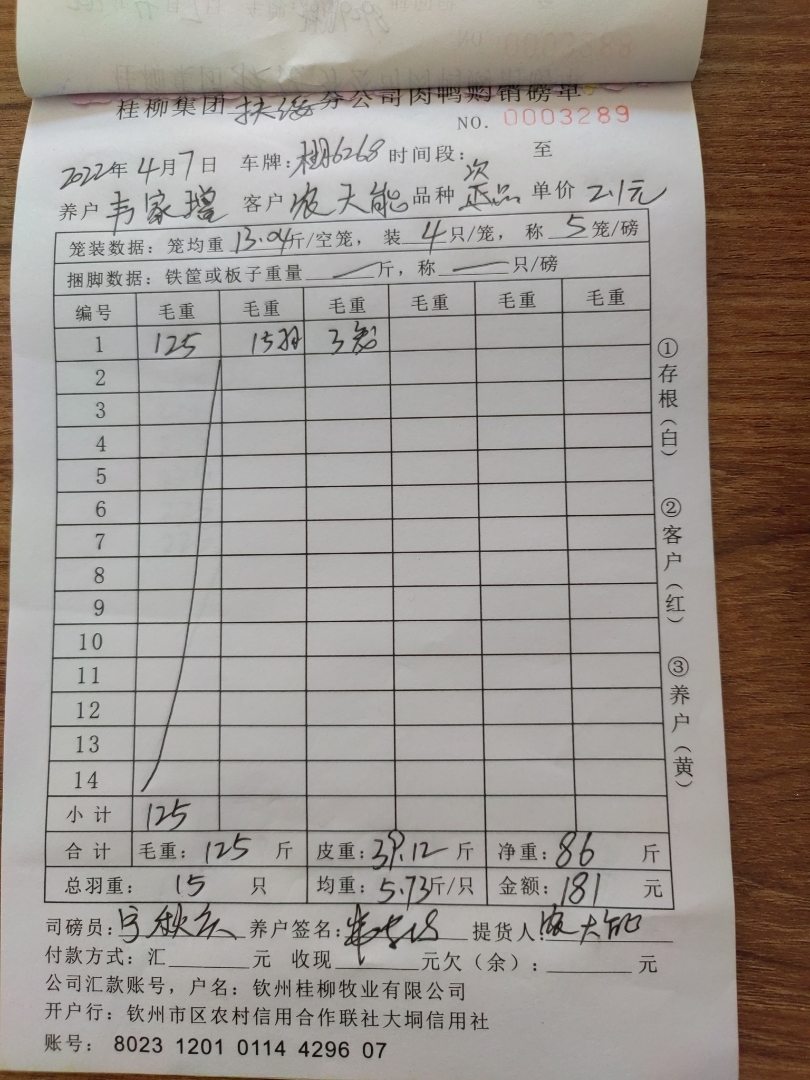 桂柳集团扶绥分公司肉鸭购销磅单
NO. 0003289
2022年4月7日 车牌: 6268 时间段: 至
养户韦家增 客户农天能 品种次品 单价2.1元
笼装数据: 笼均重13.04斤/空笼, 装4只/笼, 称5笼/磅
捆脚数据: 铁筐或板子重量 斤, 称 只/磅
编号 毛重 毛重 毛重 毛重 毛重 毛重
1 125 15羽 3笼
2
3
4
5
6
7
8
9
10
11
12
13
14
小计 125
合计 毛重: 125斤 皮重: 39.12斤 净重: 86斤
总羽重: 15只 均重: 5.73斤/只 金额: 181元
司磅员: 养户签名: 提货人: 农天能
付款方式: 汇 元 收现 元欠(余): 元
公司汇款账号, 户名: 钦州桂柳牧业有限公司
开户行: 钦州市区农村信用合作联社大垌信用社
账号: 8023 1201 0114 4296 07
①存根(白) ②客户(红) ③养户(黄)